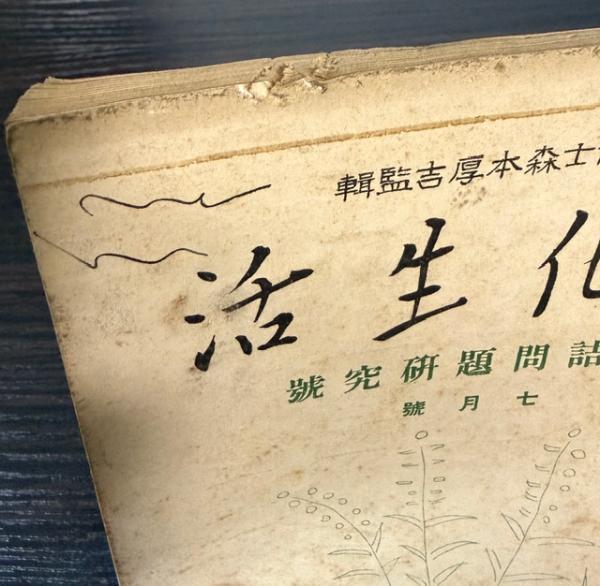 士森本厚吉監輯
化生活
詰問題硏究號
七月號